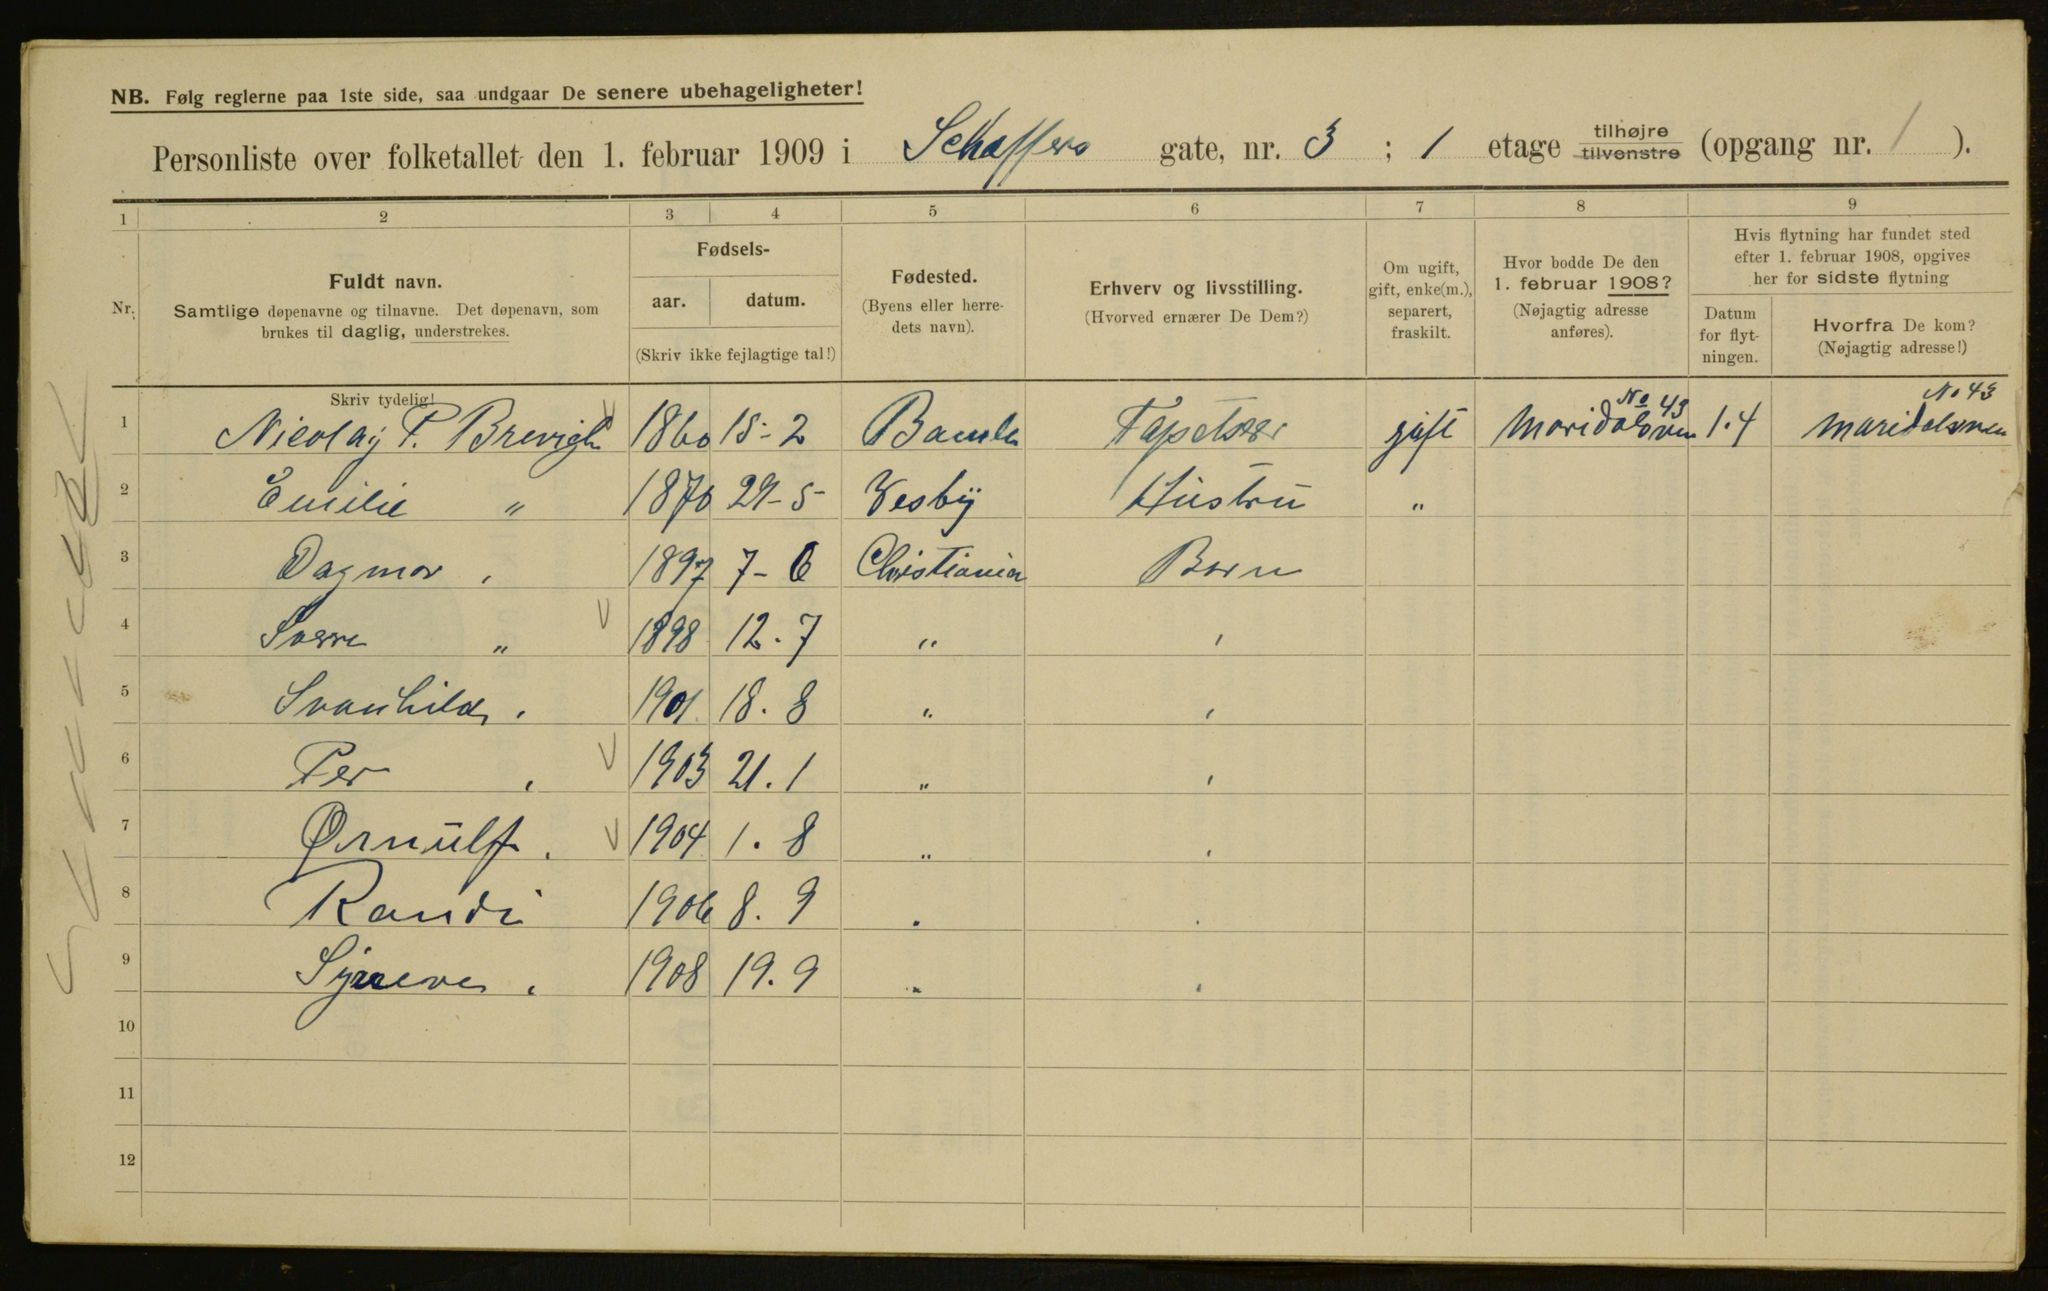 NB. Følg reglerne paa 1ste side, saa undgaar De senere ubehageligheter!
Personliste over folketallet den 1. februar 1909 i Schaffers gate, nr. 3 ; 1 etage tilhøjre tilvenstre (opgang nr. 1 ).
1 2 3 4 5 6 7 8 9
Nr.
Fuldt navn.
Samtlige døpenavne og tilnavne. Det døpenavn, som
brukes til daglig, understrekes.
Fødsels-
aar. datum.
(Skriv ikke fejlagtige tal!)
Fødested.
(Byens eller herre-
dets navn).
Erhverv og livsstilling.
(Hvorved ernærer De Dem?)
Om ugift,
gift, enke(m.),
separert,
fraskilt.
Hvor bodde De den
1. februar 1908?
(Nøjagtig adresse
anføres).
Hvis flytning har fundet sted
efter 1. februar 1908, opgives
her for sidste flytning
Datum
for flyt-
ningen.
Hvorfra De kom?
(Nøjagtig adresse!)
Skriv tydelig!
1 Nicolay P. Brevigh 1860 15-2 Bamle Tapetserer gift Maridalsven No 43 1.4 Maridalsven No 43
2 Emilie " 1870 29-5- Vesby Hustru "
3 Dagmar " 1897 7-6 Christiania Barn
4 Sverre " 1898 12.7 " "
5 Svanhild " 1901 18.8 " "
6 Per " 1903 21.1 " "
7 Ørnulf " 1904 1.8 " "
8 Randi 1906 8.9 " "
9 Synneve " 1908 19.9 " "
10
11
12